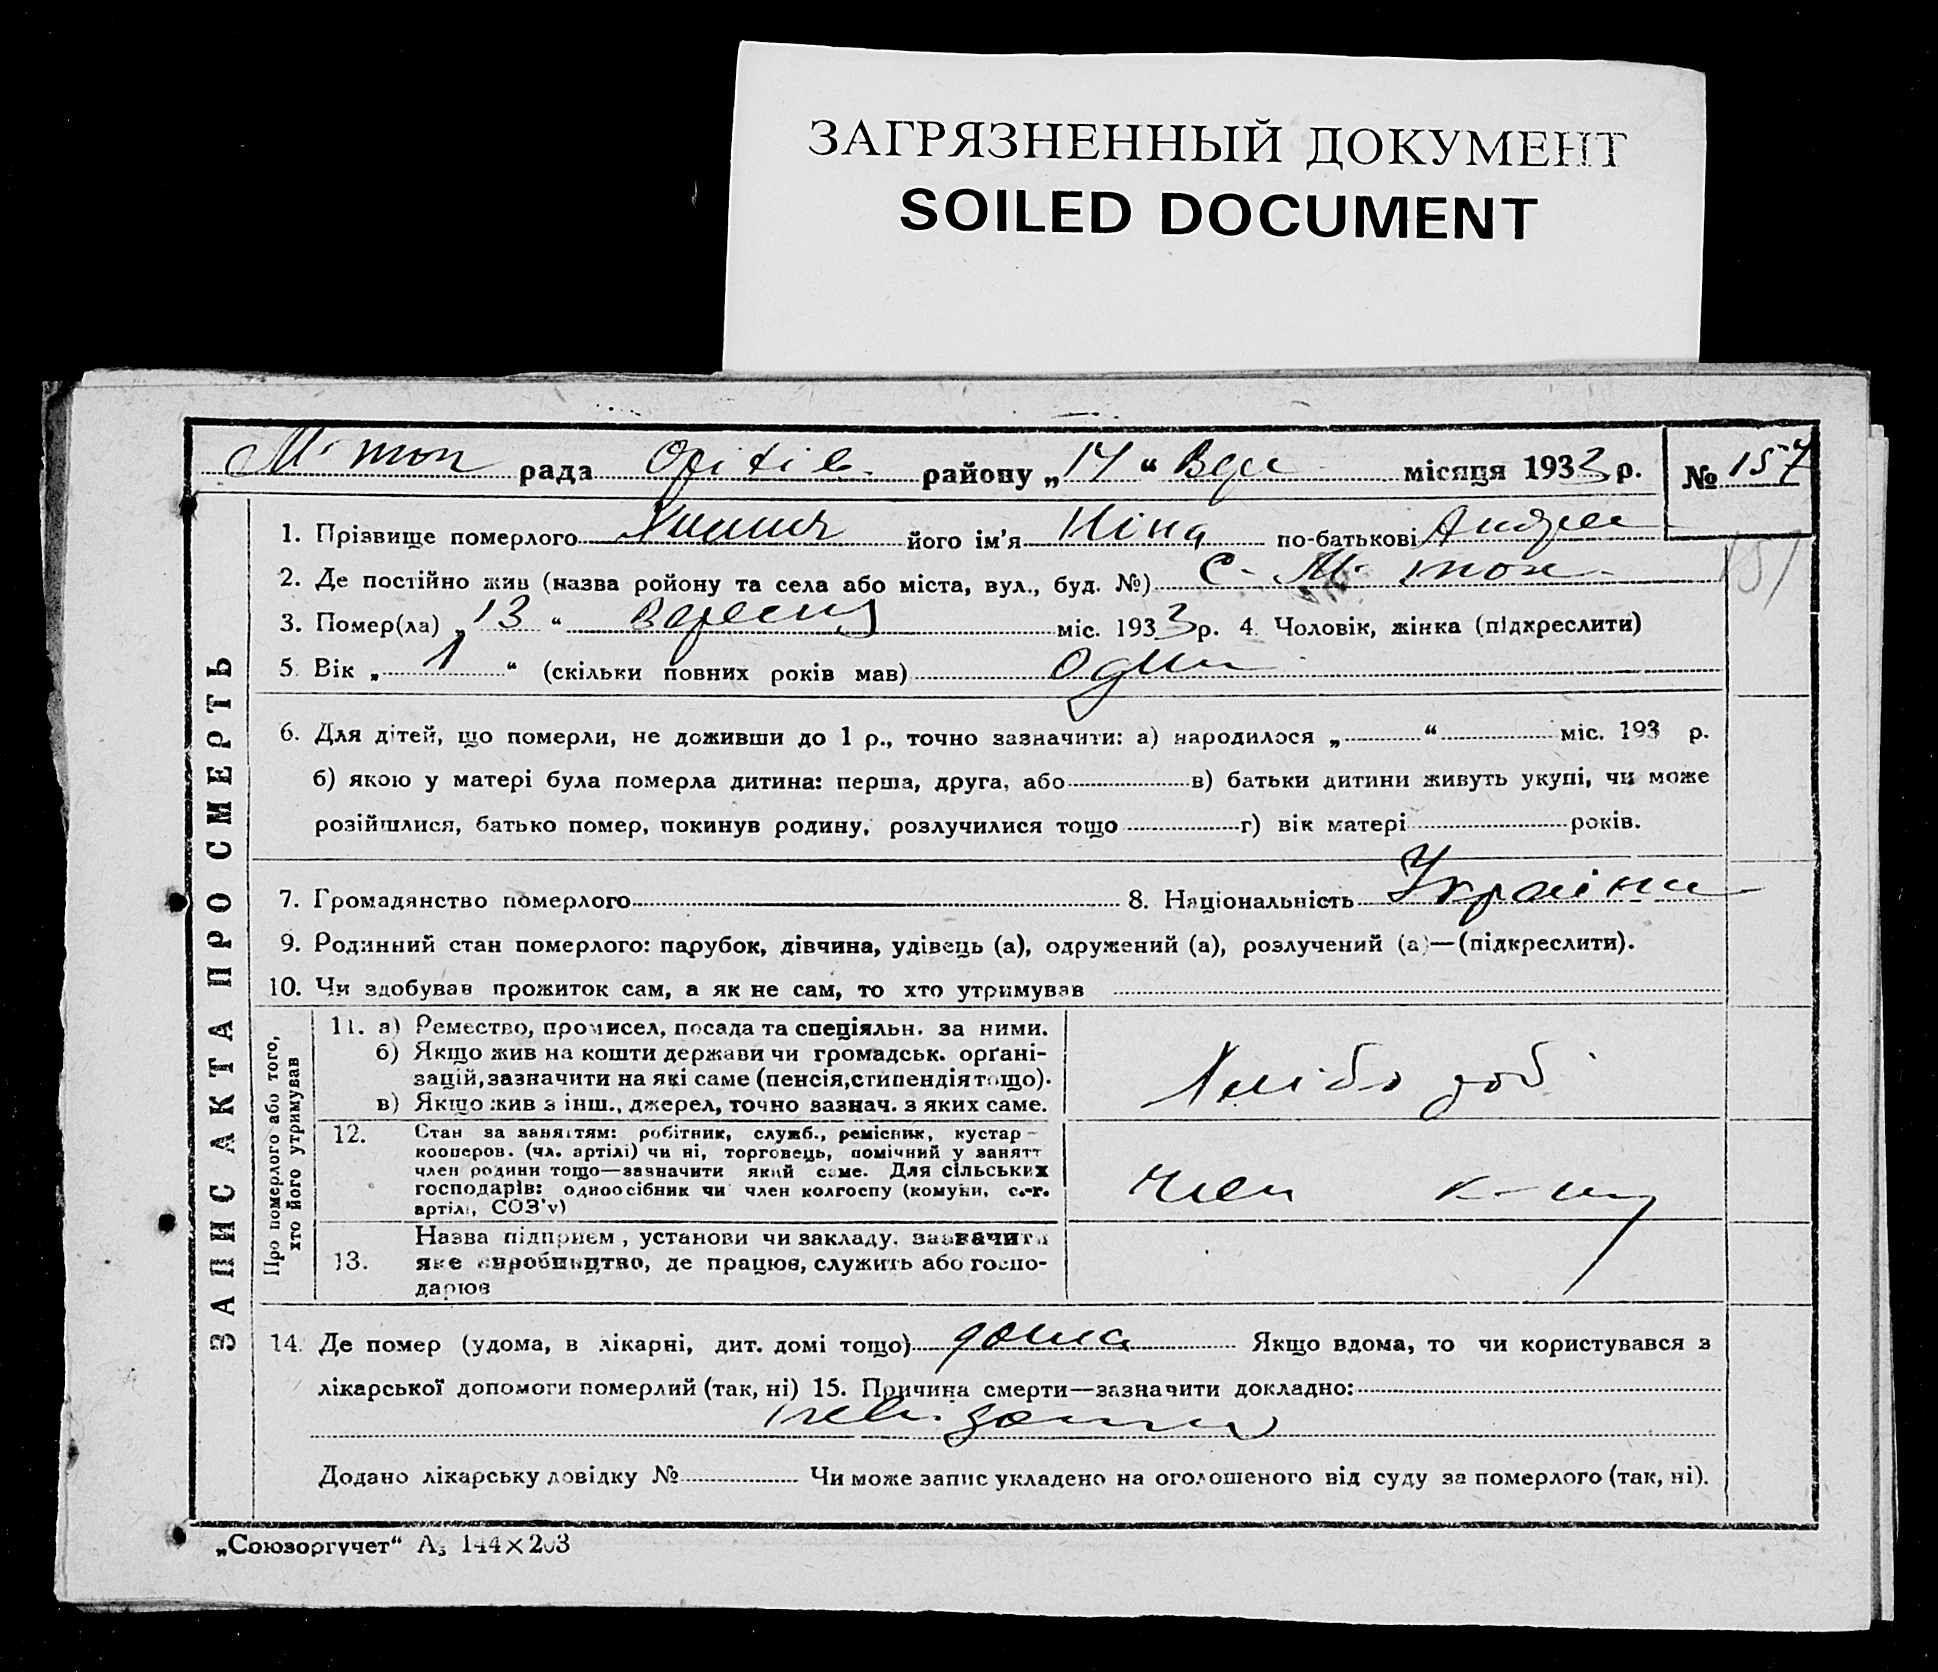 ЗАГРЯЗНЕННЫЙ ДОКУМЕНТ
SOILED DOCUMENT
рада району „14“ Вере місяця 1933 р. № 157
1. Прізвище померлого його ім'я Ніна по-батькові Андрее
2. Де постійно жив (назва ройону та села або міста, вул., буд. №) с.
3. Помер(ла) „13“ вересня міс. 1933 р. 4. Чоловік, жінка (підкреслити)
5. Вік „1“ (скільки повних років мав) один
6. Для дітей, що померли, не доживши до 1 р., точно зазначити: а) народилося „ “ міс. 193 р.
б) якою у матері була померла дитина: перша, друга, або в) батьки дитини живуть укупі, чи може
розійшлися, батько помер, покинув родину, розлучилися тощо г) вік матері років.
7. Громадянство померлого 8. Національність Україн
9. Родинний стан померлого: парубок, дівчина, удівець (а), одружений (а), розлучений (а)—(підкреслити).
10. Чи здобував прожиток сам, а як не сам, то хто утримував
ЗАПИС АКТА ПРО СМЕРТЬ
Про померлого або того,
хто його утримував
11. а) Ремество, промисел, посада та спеціяльн. за ними.
б) Якщо жив на кошти держави чи громадськ. орґані-
зацій, зазначити на які саме (пенсія, стипендія тощо).
в) Якщо жив з інш., джерел, точно зазнач. з яких саме.
Хлібо роб
12. Стан за заняттям: робітник, служб., ремісник, кустар-
кооперов. (чл. артілі) чи ні, торговець, помічний у занятт
член родини тощо—зазначити який саме. Для сільських
господарів: одноосібник чи член колгоспу (комуни, с.-г.
артілі, СОЗ'у)
член к-пу
Назва підприєм, установи чи закладу, зазначити
13. яке виробництво, де працює, служить або госпо-
дарює
14. Де помер (удома, в лікарні, дит. домі тощо) дома Якщо вдома, то чи користувався з
лікарської допомоги померлий (так, ні) 15. Причина смерти—зазначити докладно:
Додано лікарську довідку № Чи може запис укладено на оголошеного від суду за померлого (так, ні).
„Союзоргучет“ А₅ 144×203